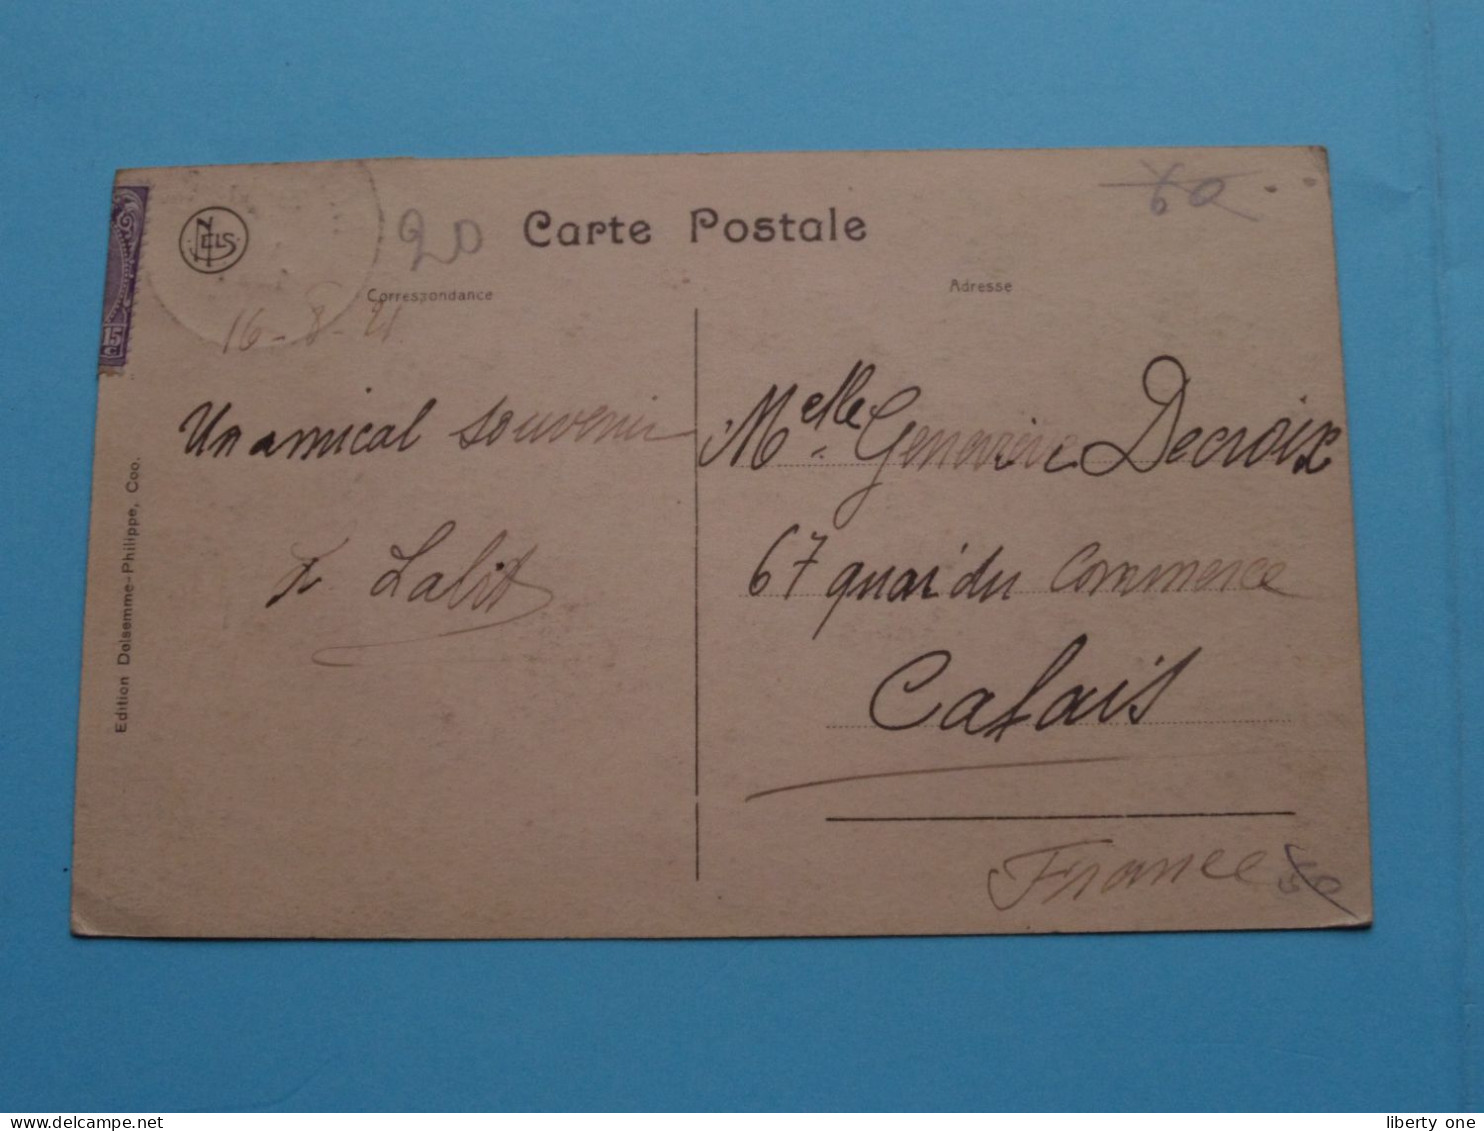 NELS
20
Carte Postale
60
Correspondance
Adresse
15
c
16-8-21
Un amical souvenir
Melle Geneviève Decroix
67 quai du Commerce
Calais
France
Edition Delsemme-Philippe, Coo.
delcampe.net
liberty one